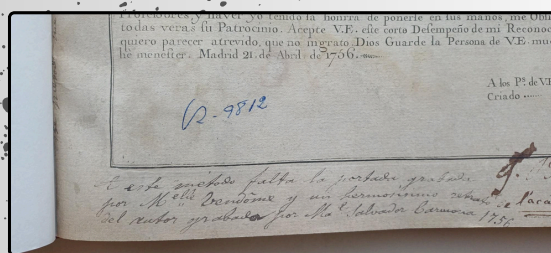 Profesores, y haver yo tenido la honrra de ponerle en sus manos, me Obli
todas veras su Patrocinio. Acepte V.E. este corto Desempeño de mi Reconoc
quiero parecer atrevido, que no ingrato. Dios Guarde la Persona de V.E. muc
he menester. Madrid 21. de Abril de 1756.
A los Ps. de V.E
Criado
R-9812
A este metodo falta la portada grabada
por Melle Vendôme y un hermosisimo retrato
del autor grabado por Mal Salvador Carmona 1756